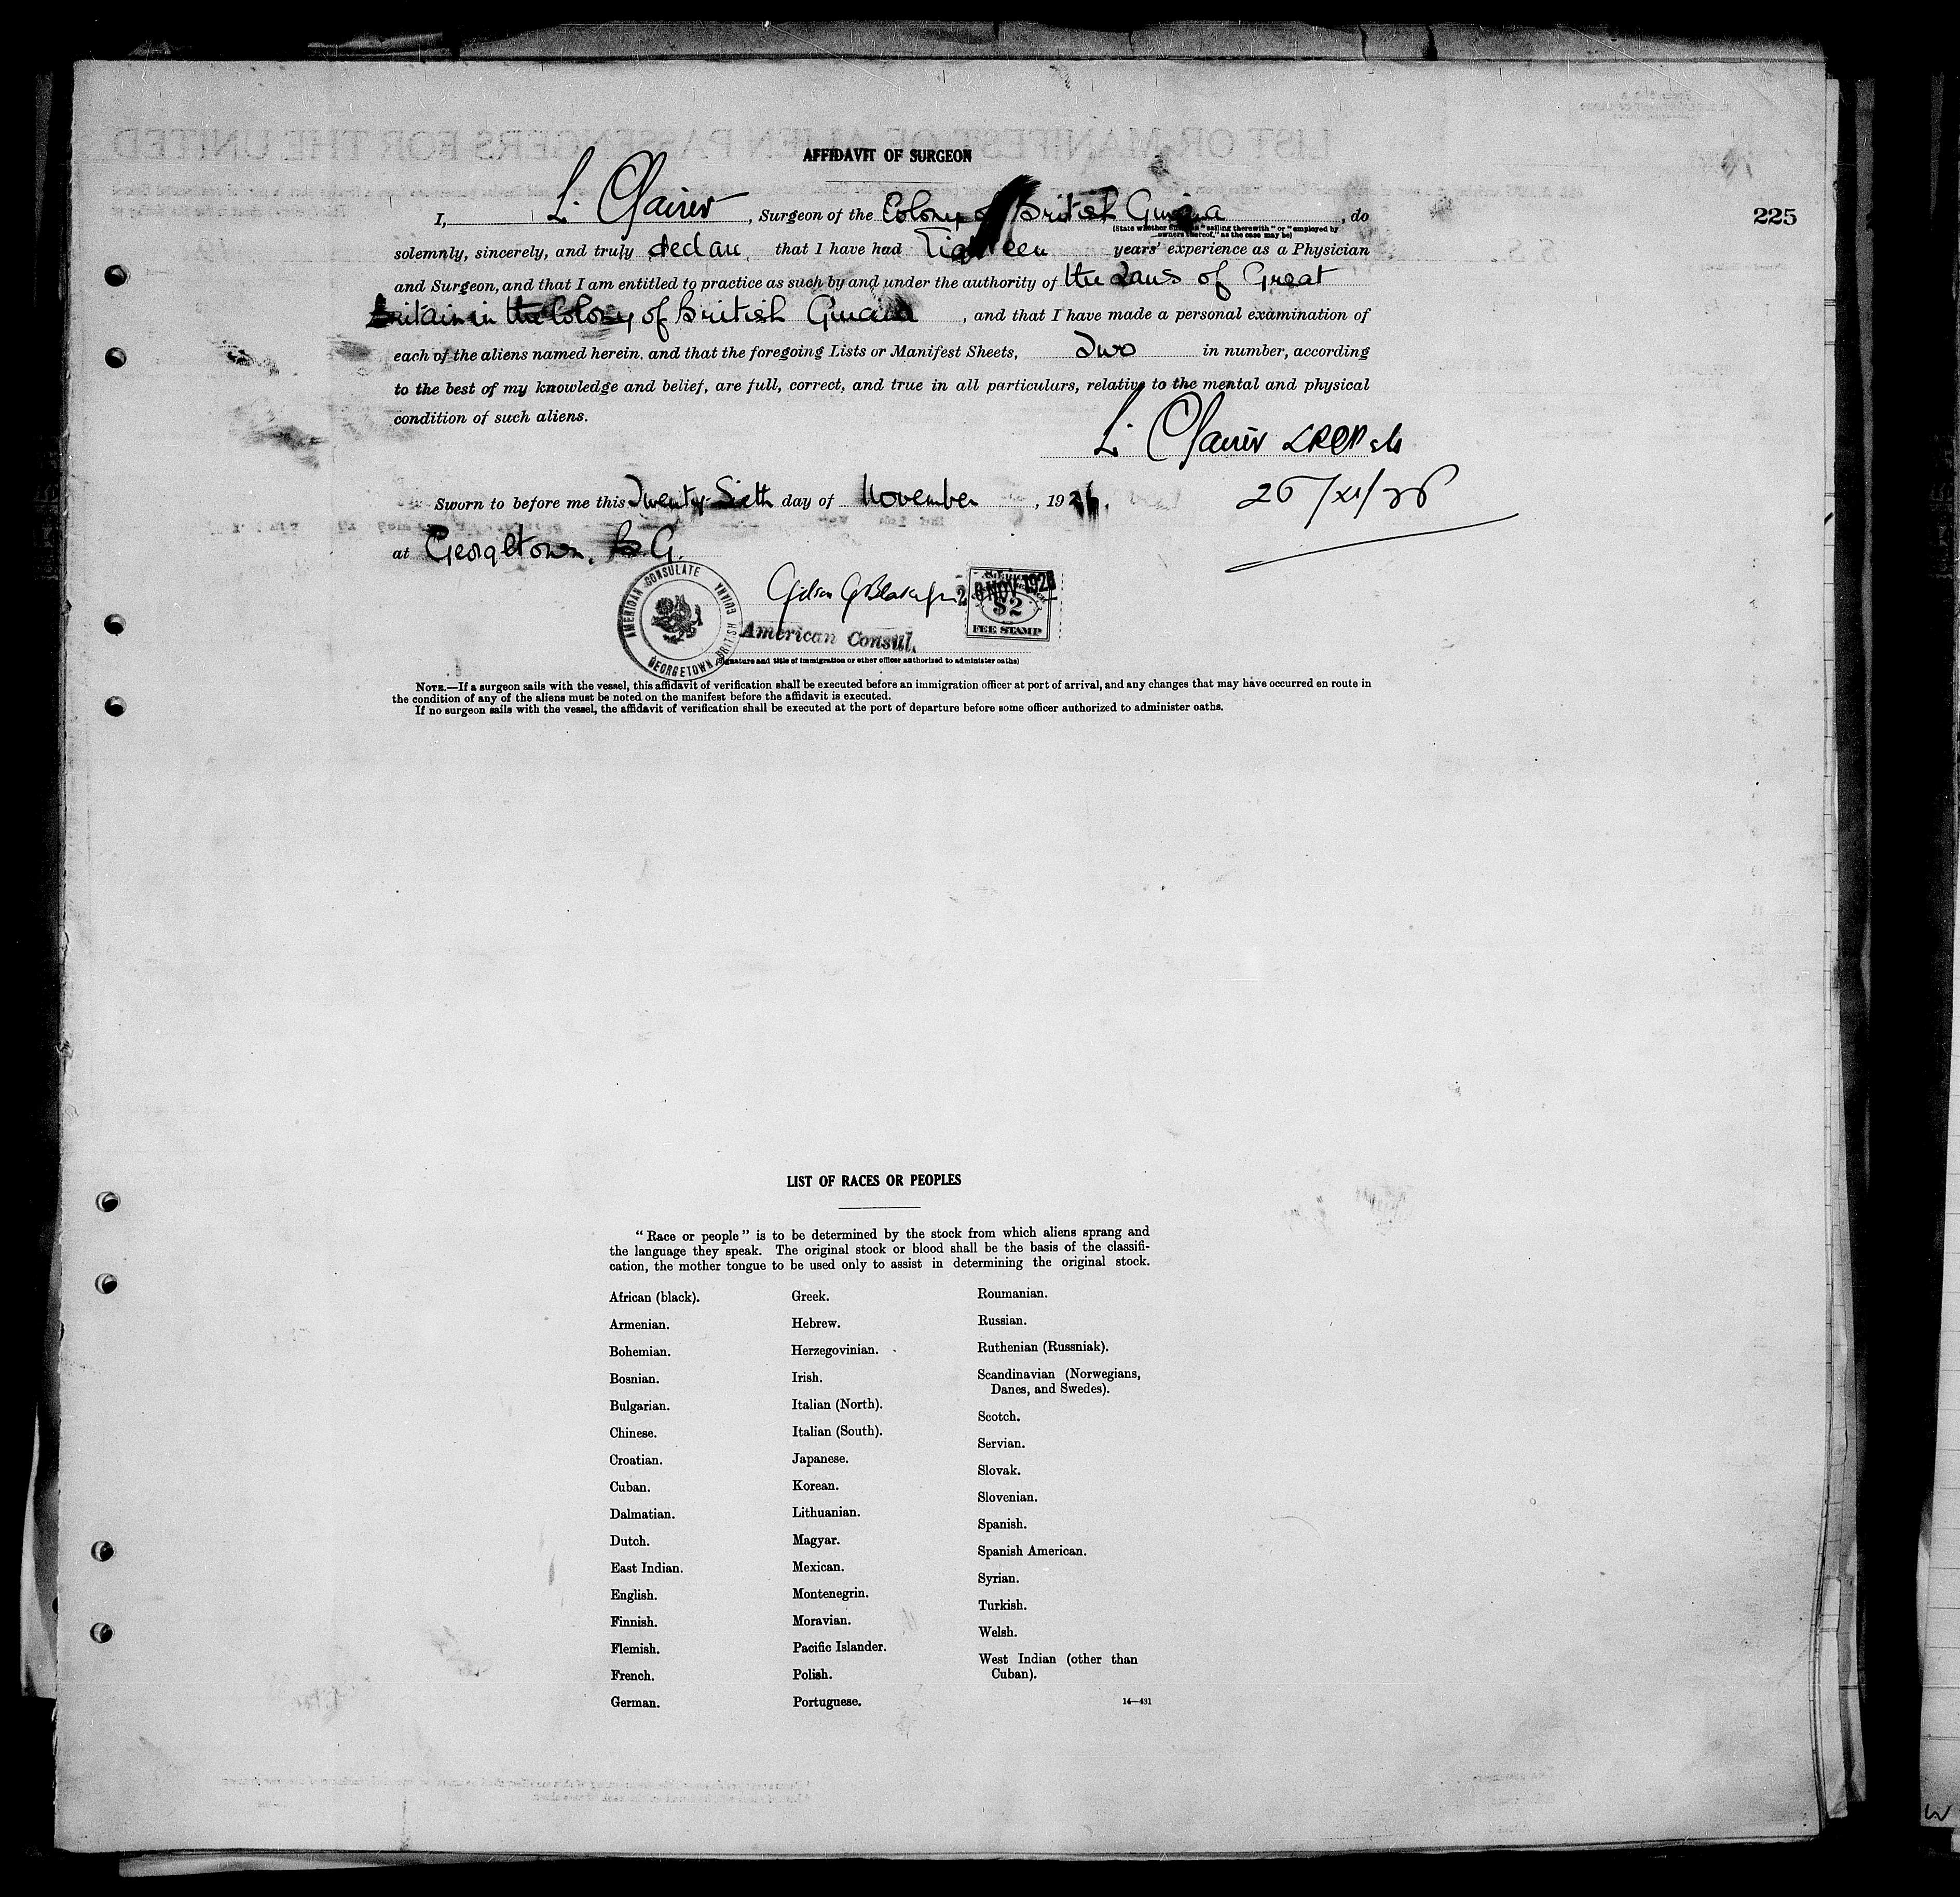 AFFIDAVIT OF SURGEON
I, L. , Surgeon of the Colony of British Guiana, do
(State whether "sailing therewith" or "employed by
owners thereof," as the case may be)
225
solemnly, sincerely, and truly declare that I have had Eighteen years' experience as a Physician
and Surgeon, and that I am entitled to practice as such by and under the authority of the Laws of Great
Britain in the Colony of British Guiana, and that I have made a personal examination of
each of the aliens named herein, and that the foregoing Lists or Manifest Sheets, Two in number, according
to the best of my knowledge and belief, are full, correct, and true in all particulars, relative to the mental and physical
condition of such aliens.
L.
Sworn to before me this Twenty-Sixth day of November, 1926.
26/XI/26
at Georgetown, B.G.
AMERICAN CONSULATE
GEORGETOWN, BRITISH GUIANA
26 NOV 1926
$2
FEE STAMP
American Consul.
(Signature and title of immigration or other officer authorized to administer oaths)
NOTE.—If a surgeon sails with the vessel, this affidavit of verification shall be executed before an immigration officer at port of arrival, and any changes that may have occurred en route in
the condition of any of the aliens must be noted on the manifest before the affidavit is executed.
If no surgeon sails with the vessel, the affidavit of verification shall be executed at the port of departure before some officer authorized to administer oaths.
LIST OF RACES OR PEOPLES
"Race or people" is to be determined by the stock from which aliens sprang and
the language they speak. The original stock or blood shall be the basis of the classifi-
cation, the mother tongue to be used only to assist in determining the original stock.
African (black).
Armenian.
Bohemian.
Bosnian.
Bulgarian.
Chinese.
Croatian.
Cuban.
Dalmatian.
Dutch.
East Indian.
English.
Finnish.
Flemish.
French.
German.
Greek.
Hebrew.
Herzegovinian.
Irish.
Italian (North).
Italian (South).
Japanese.
Korean.
Lithuanian.
Magyar.
Mexican.
Montenegrin.
Moravian.
Pacific Islander.
Polish.
Portuguese.
Roumanian.
Russian.
Ruthenian (Russniak).
Scandinavian (Norwegians,
Danes, and Swedes).
Scotch.
Servian.
Slovak.
Slovenian.
Spanish.
Spanish American.
Syrian.
Turkish.
Welsh.
West Indian (other than
Cuban).
14—431